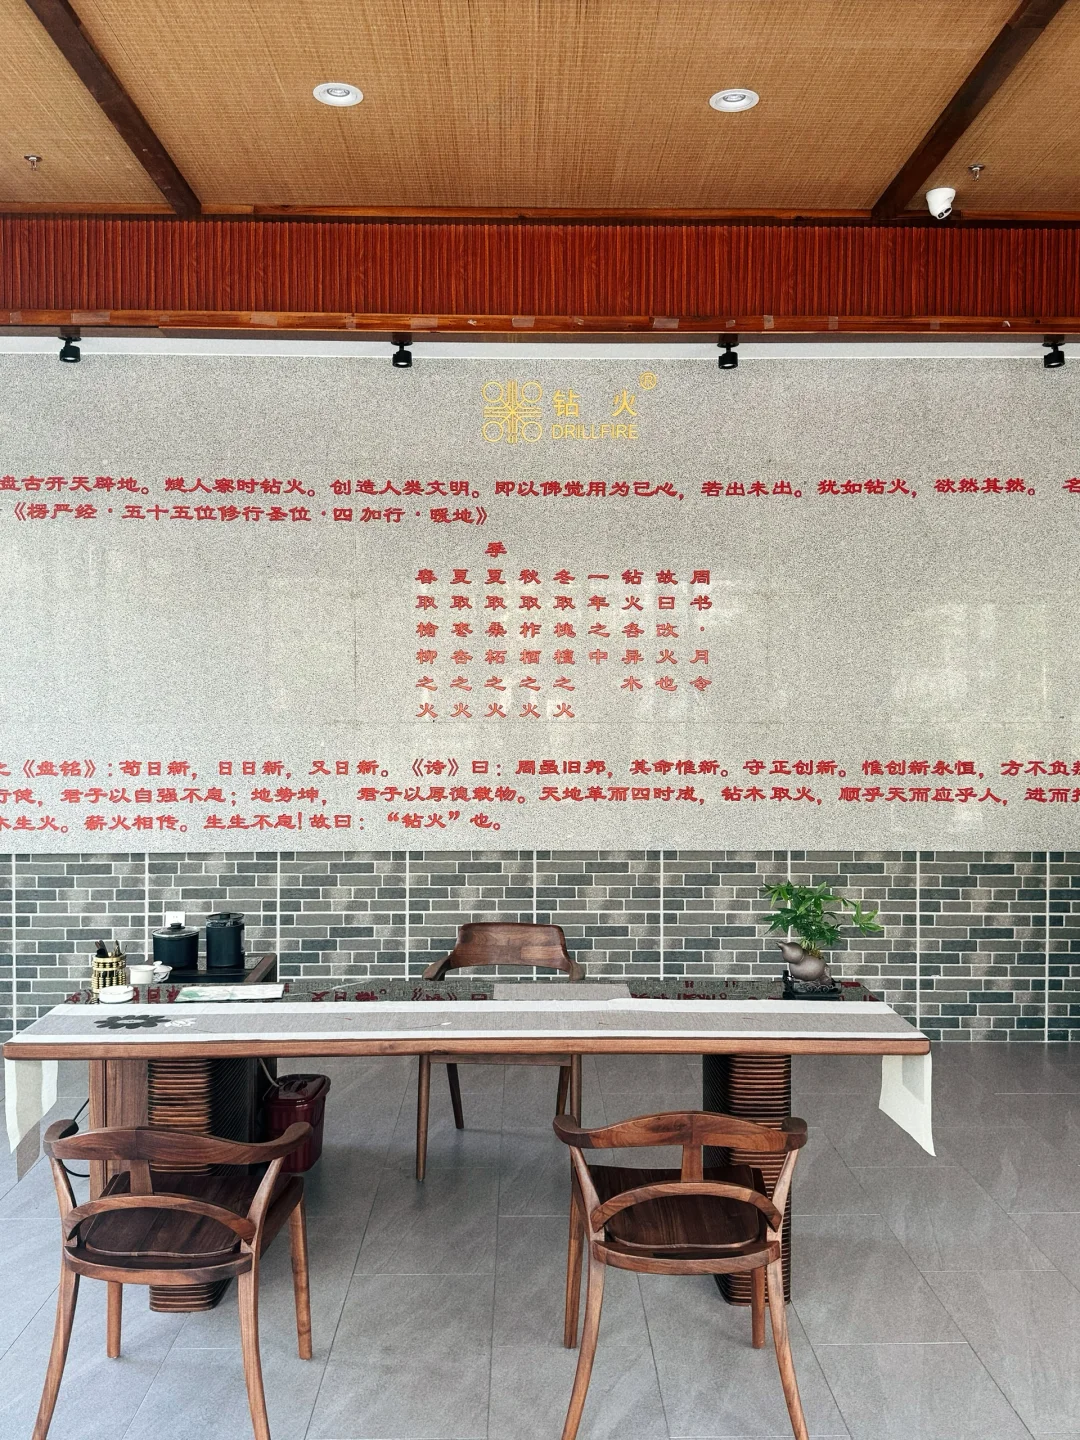 ®
钻 火
DRILLFIRE
盘古开天辟地。燧人察时钻火。创造人类文明。即以佛觉用为己心，若出未出。犹如钻火，欲然其然。 名
《楞严经·五十五位修行圣位·四加行·暖地》
春取榆柳之火
夏取枣杏之火
季夏取桑柘之火
秋取柞楢之火
冬取槐檀之火
一年之中
钻火各异木
故曰改火也
周书·月令
之《盘铭》：苟日新，日日新，又日新。《诗》曰：周虽旧邦，其命惟新。守正创新。惟创新永恒，方不负
行健，君子以自强不息；地势坤， 君子以厚德载物。天地革而四时成，钻木取火，顺乎天而应乎人，进而
木生火。薪火相传。生生不息！故曰：“钻火”也。